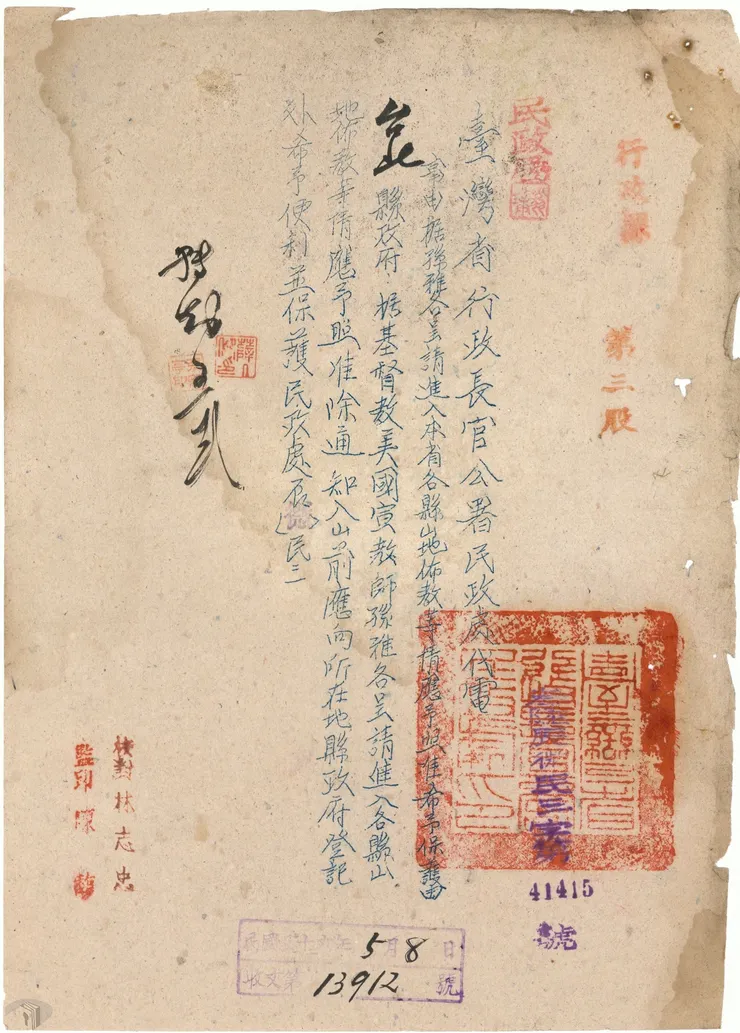 行政課　第三股
民政處
臺灣省行政長官公署民政處代電
事由據孫雅各呈請進入本省各縣山地佈教等情應予照准希予保護由
台北縣政府　據基督教美國宣教師孫雅各呈請進入各縣山
地佈教等情應予照准除通知入山前應向所在地縣政府登記
外希予便利並保護民政處 民三
民三字第
41415
號
校對林志忠
監印陳
民國 年5月8日
收文第13912號